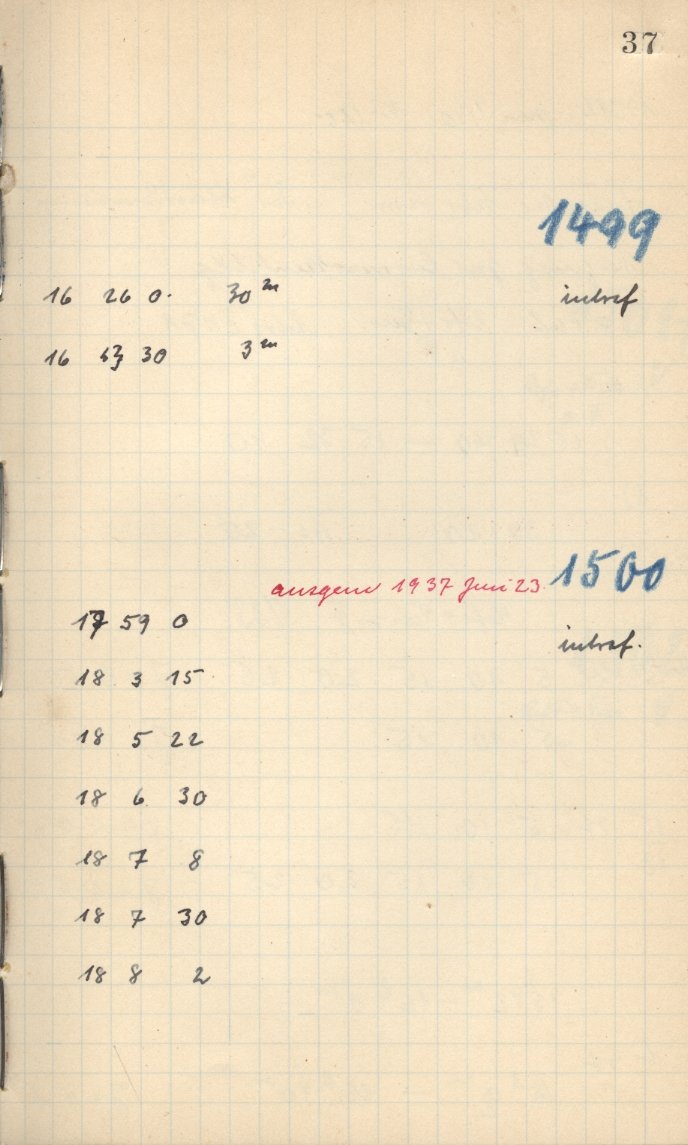 37
1499
16 26 0. 30 m
intraf
16 43 30 3 m
1500
ausgem 1937 Juni 23
17 59 0
intraf.
18 3 15
18 5 22
18 6 30
18 7 8
18 7 30
18 8 2